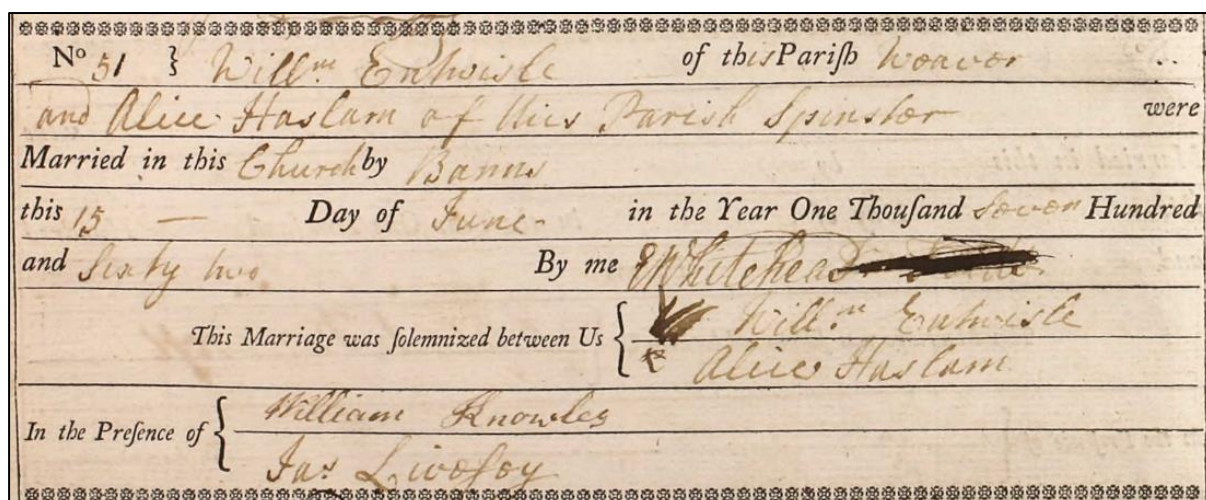 No 51 } Willm Entwisle of this Pariſh Weaver
and Alice Haslam of this Parish Spinster were
Married in this Church by Banns
this 15 — Day of June in the Year One Thouſand Seven Hundred
and Sixty two By me E Whitehead
This Marriage was ſolemnized between Us { Willm Entwisle
Alice Haslam
In the Preſence of { William Knowles
Jas Livesey